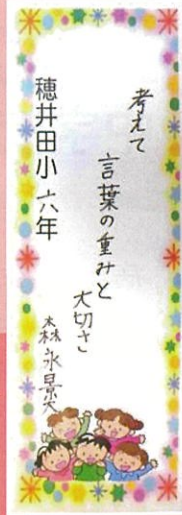 考えて
言葉の重みと
大切さ
穂井田小 六年
森永景大